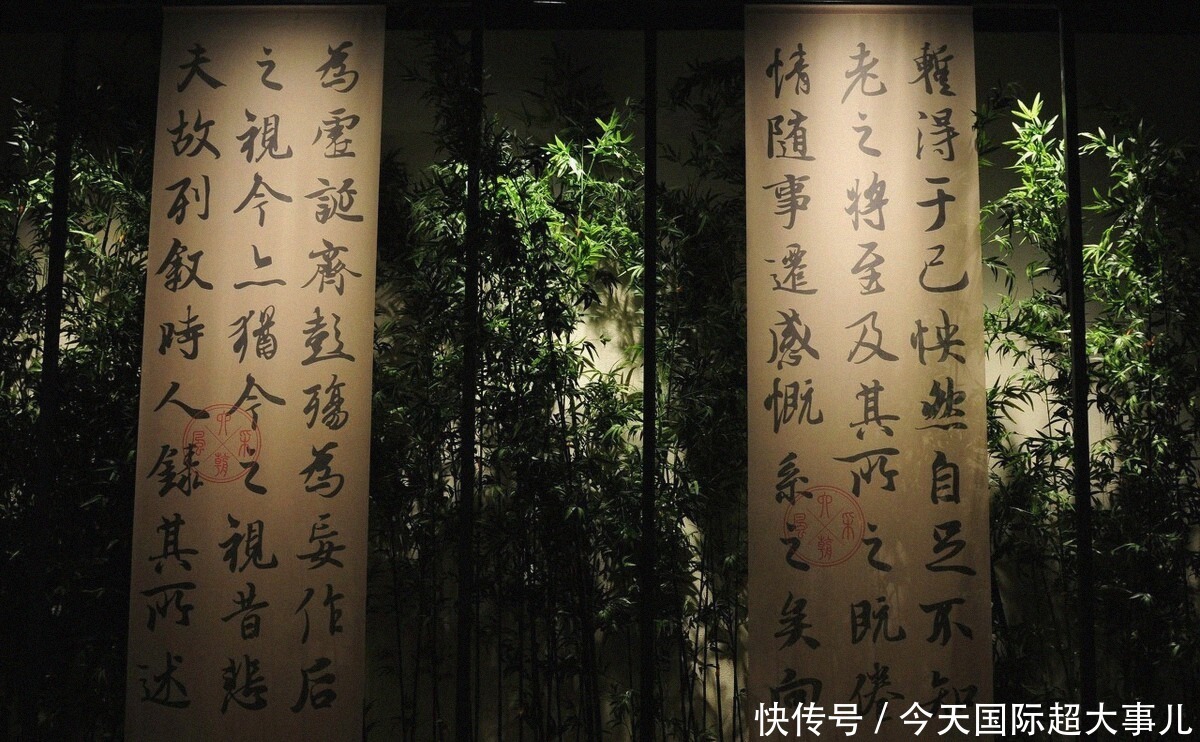 暫得于己怏然自足不知
老之將至及其所之既倦
情随事遷感慨系之矣向
為虛誕齊彭殤為妄作后
之視今亦猶今之視昔悲
夫故列叙時人錄其所述
快传号 / 今天国际超大事儿